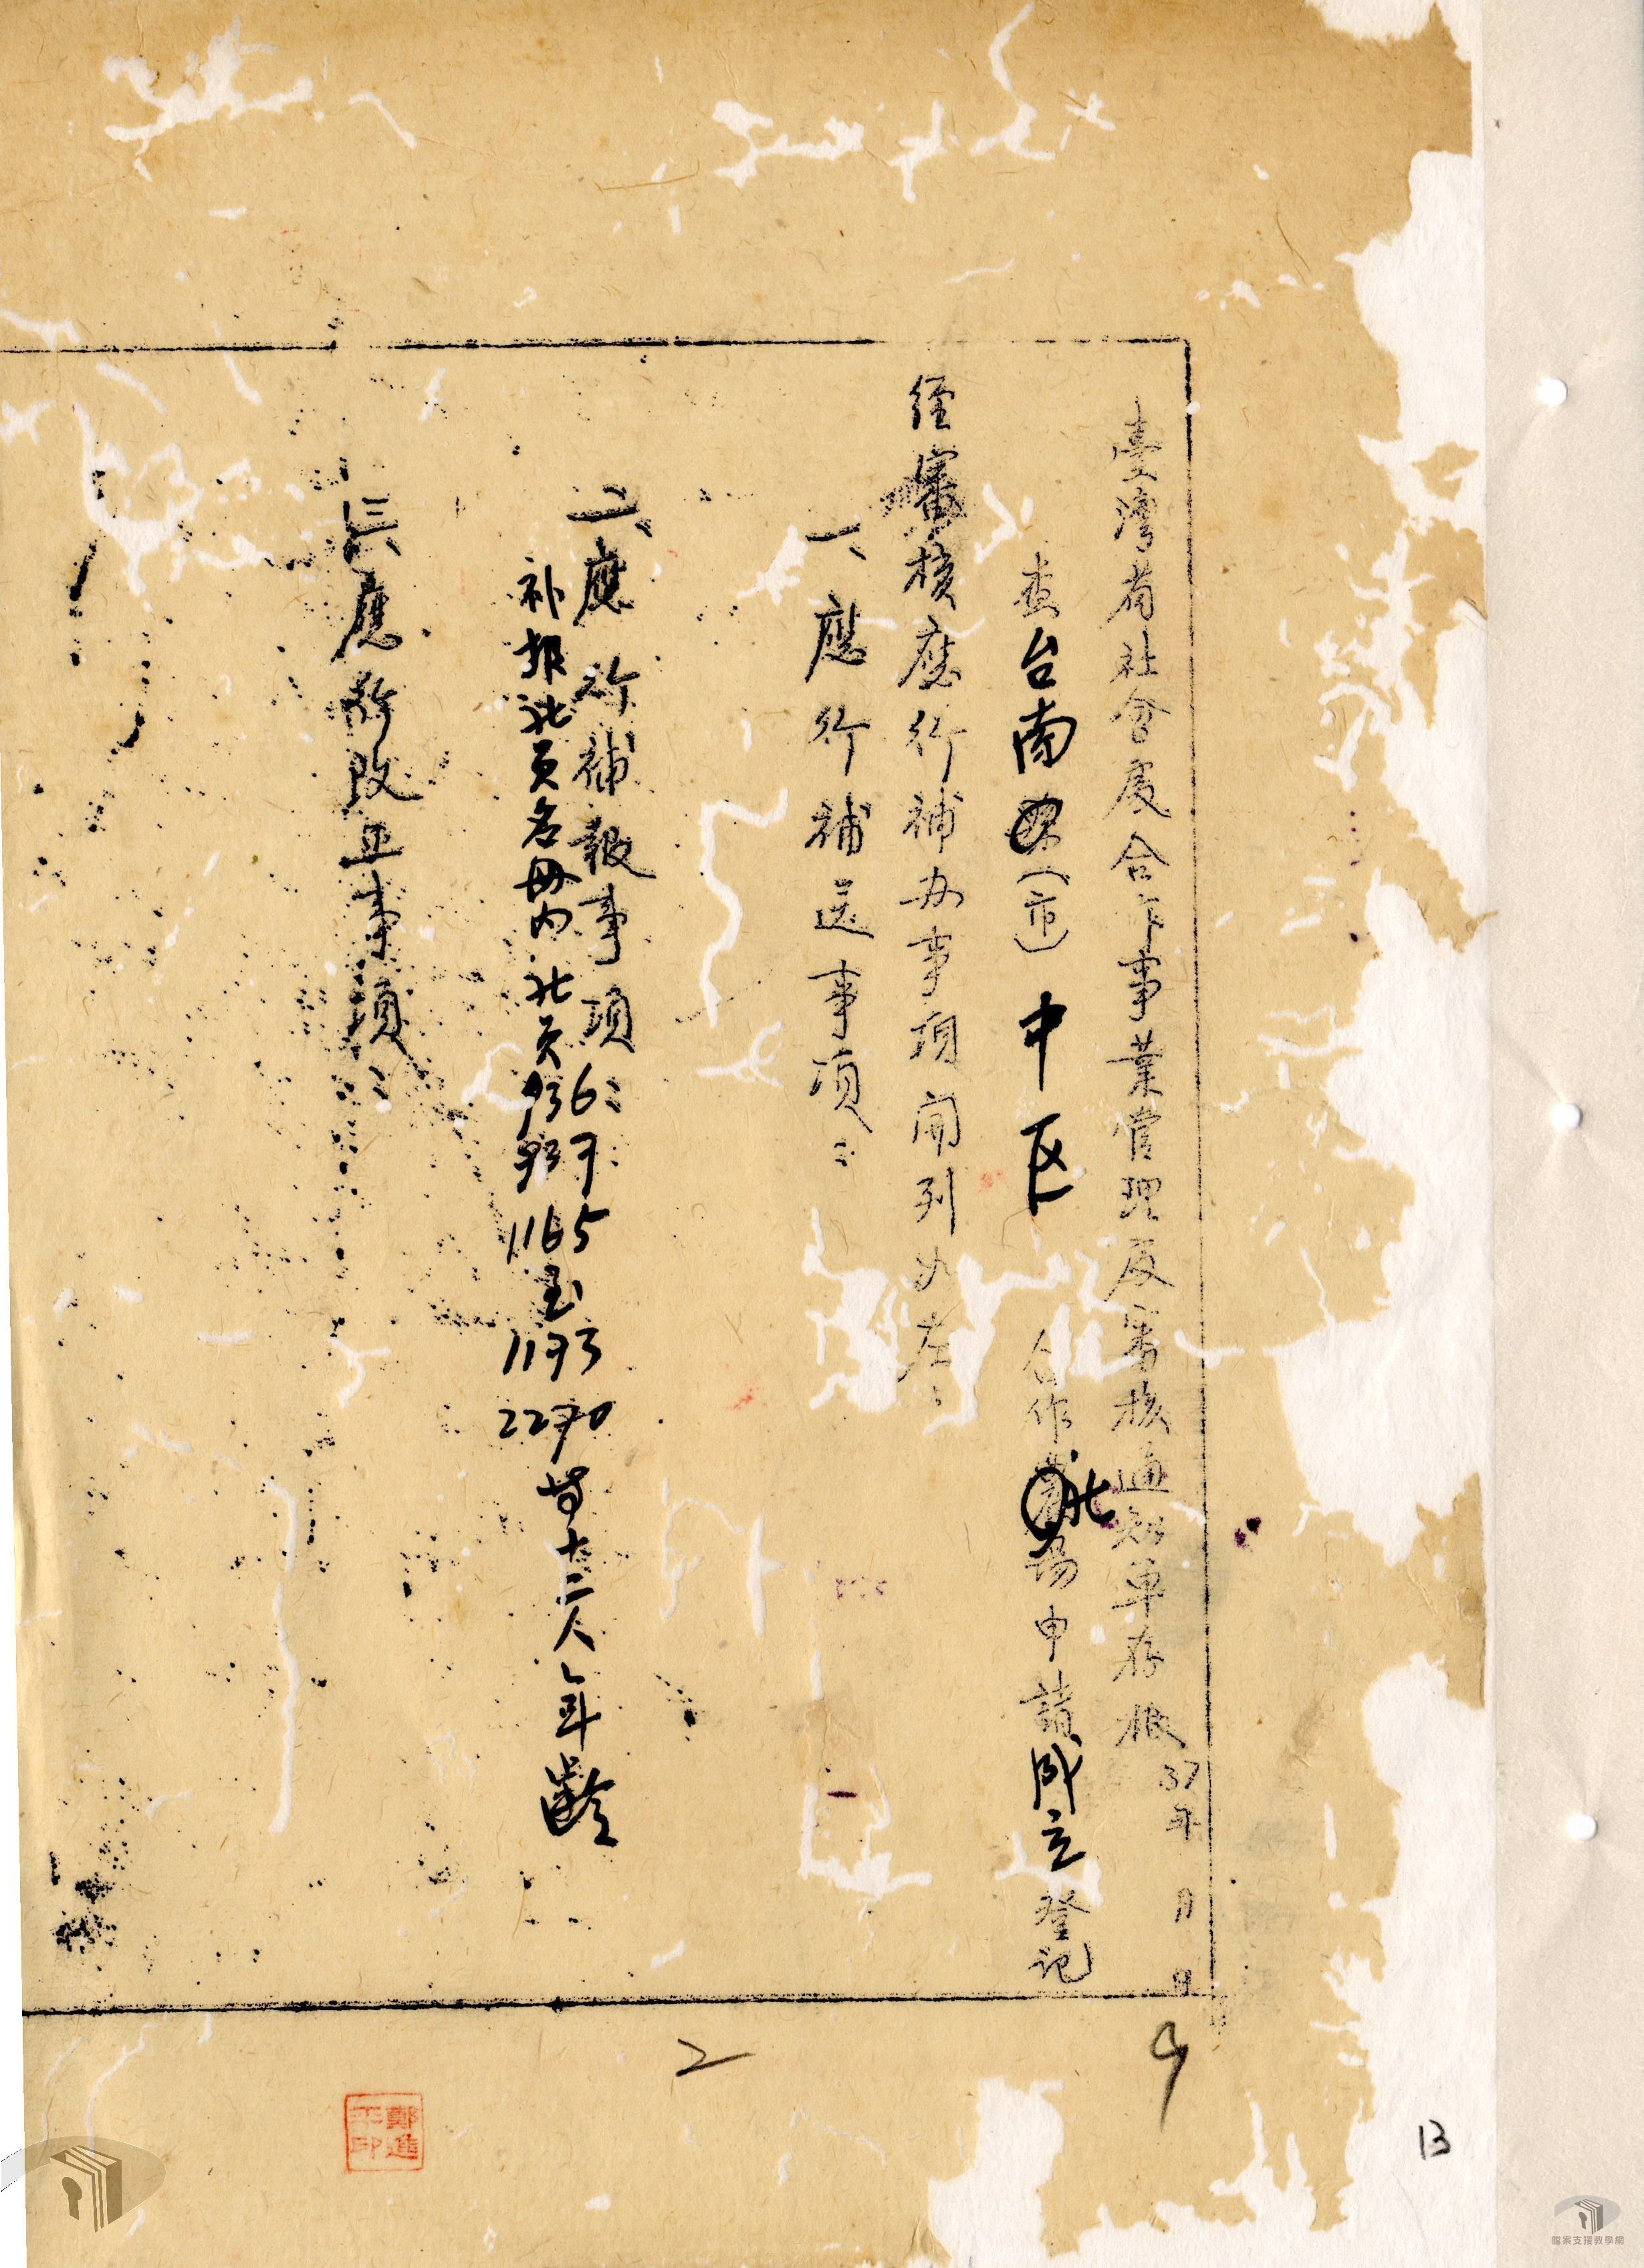 臺灣省社會處合作事業管理處審核通知單存根 37年 月 日
查台南(市)中区 合作社場申請成立登記
經審核應行補办事項開列如左：
一、應行補送事項：
二、應行補報事項：
补报社员名册内社员936 937 1165至1173 2270等十二人年齡
三、應行改正事項：
2
9
13
鄭進平印
檔案支援教學網